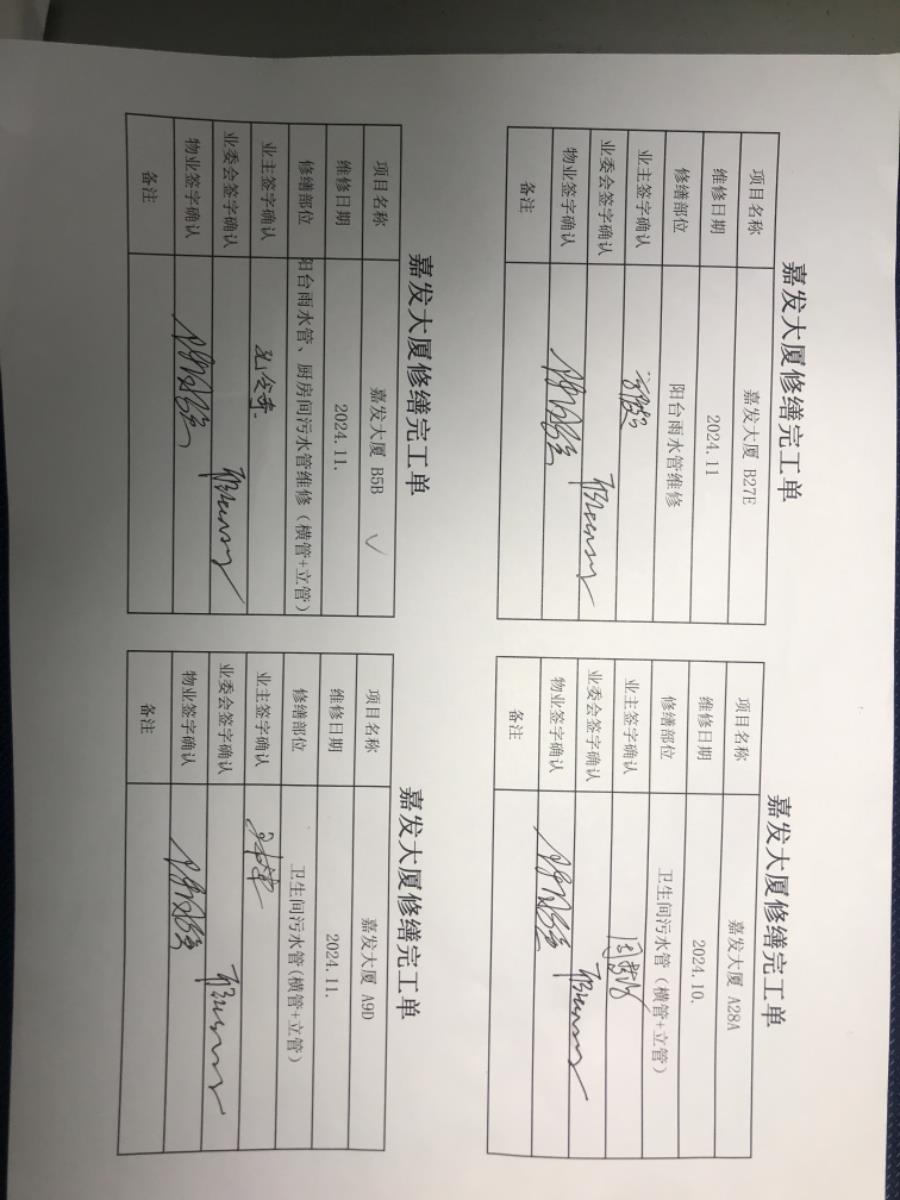 嘉发大厦修缮完工单
项目名称 嘉发大厦 B27E
维修日期 2024.11
修缮部位 阳台雨水管维修
业主签字确认
业委会签字确认
物业签字确认
备注
嘉发大厦修缮完工单
项目名称 嘉发大厦 A28A
维修日期 2024.10.
修缮部位 卫生间污水管（横管+立管）
业主签字确认
业委会签字确认
物业签字确认
备注
嘉发大厦修缮完工单
项目名称 嘉发大厦 B5B ✓
维修日期 2024.11.
修缮部位 阳台雨水管、厨房间污水管维修（横管+立管）
业主签字确认
业委会签字确认
物业签字确认
备注
嘉发大厦修缮完工单
项目名称 嘉发大厦 A9D
维修日期 2024.11.
修缮部位 卫生间污水管(横管+立管)
业主签字确认
业委会签字确认
物业签字确认
备注